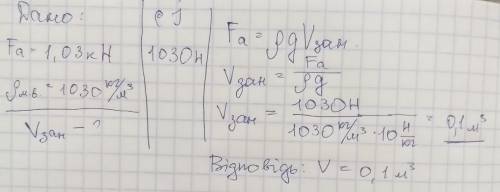 Дано:
Fa - 1,03кН
ρмв = 1030 кг/м³
Vзан - ?
СІ
1030Н
Fa = ρgVзан.
Vзан = Fa/ρg
Vзан = 1030Н/1030 кг/м³ · 10 Н/кг = 0,1 м³
Відповідь: V = 0,1 м³